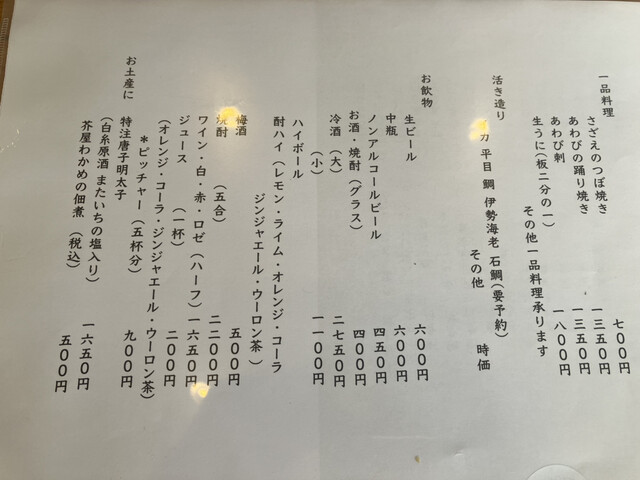 一品料理
さざえのつぼ焼き 七〇〇円
あわびの踊り焼き 一三五〇円
あわび刺 一三五〇円
生うに(板二分の一) 一八〇〇円
その他一品料理承ります
活き造り
カ 平目 鯛 伊勢海老 石鯛(要予約)
その他 時価
お飲物
生ビール 六〇〇円
中瓶 六〇〇円
ノンアルコールビール 四五〇円
お酒・焼酎(グラス) 四〇〇円
冷酒(大) 二七五〇円
(小) 一一〇〇円
ハイボール
酎ハイ(レモン・ライム・オレンジ・コーラ
ジンジャエール・ウーロン茶)
梅酒 五〇〇円
焼酎 (五合) 二二〇〇円
ワイン・白・赤・ロゼ(ハーフ)一六五〇円
ジュース (一杯) 二〇〇円
(オレンジ・コーラ・ジンジャエール・ウーロン茶)
*ピッチャー(五杯分) 九〇〇円
お土産に
特注唐子明太子
(白糸原酒 またいちの塩入り) 一六五〇円
芥屋わかめの佃煮 (税込) 五〇〇円